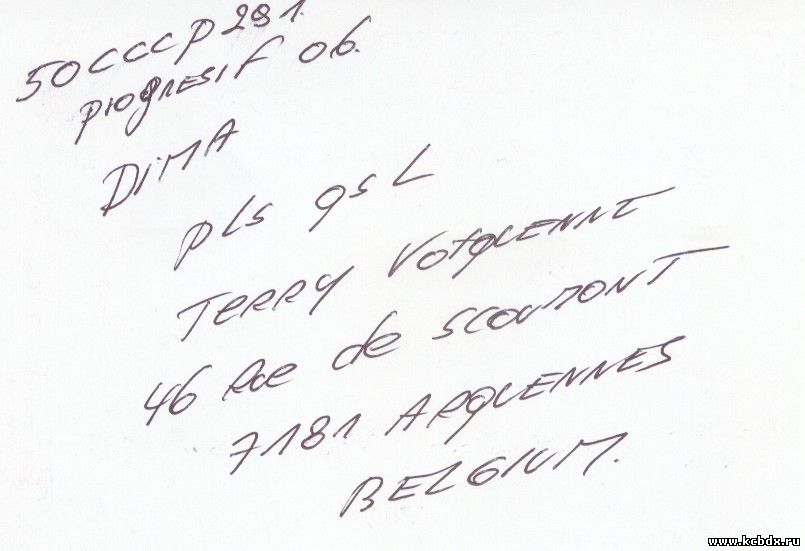 50CCCP291.
progresif 06.
DIMA
pls qsL
TERRY VOTQUENNE
46 Rue de SCOUMONT
7181 ARQUENNES
BELGIUM.
www.kcbdx.ru